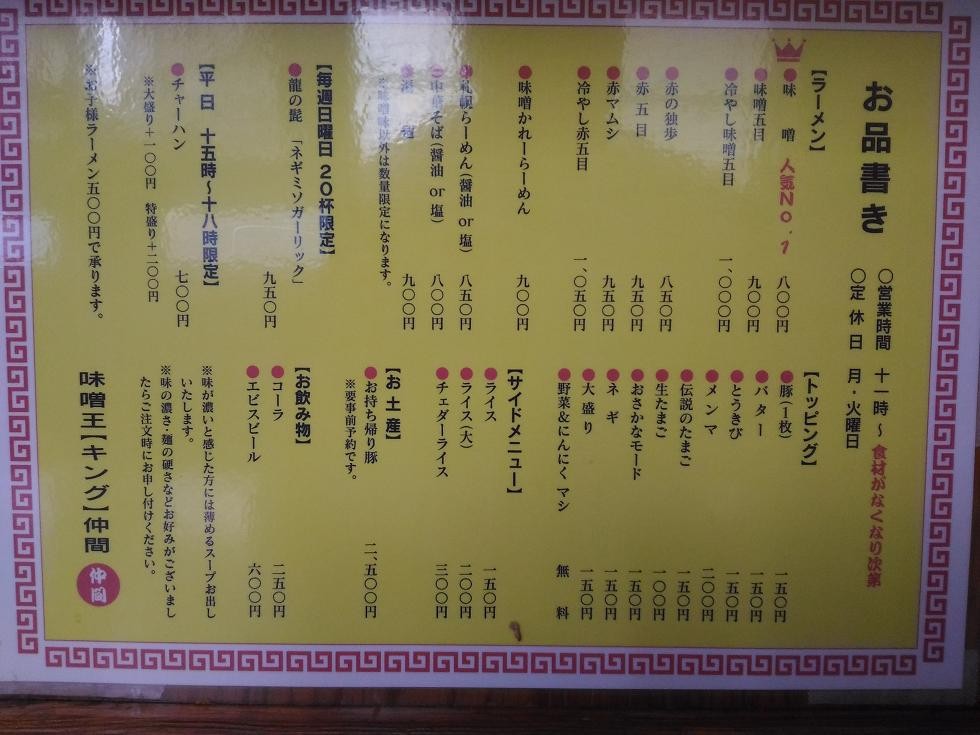 お品書き
〇営業時間 十一時～食材がなくなり次第
〇定休日 月・火曜日
【ラーメン】
●味噌 人気No.1 八〇〇円
●味噌五目 九〇〇円
●冷やし味噌五目 一、〇〇〇円
●赤の独歩 八五〇円
●赤五目 九五〇円
●赤マムシ 九五〇円
●冷やし赤五目 一、〇五〇円
●味噌かれーらーめん 九〇〇円
●札幌らーめん(醤油 or 塩) 八五〇円
●中華そば(醤油 or 塩) 八〇〇円
九〇〇円
※味噌味以外は数量限定になります。
【毎週日曜日 20杯限定】
●龍の髭 「ネギミソガーリック」 九五〇円
【平日 十五時～十八時限定】
●チャーハン 七〇〇円
※大盛り＋一〇〇円 特盛り＋二〇〇円
※お子様ラーメン五〇〇円で承ります。
【トッピング】
●豚(1枚) 一五〇円
●バター 一五〇円
●とうきび 一五〇円
●メンマ 二〇〇円
●伝説のたまご 一五〇円
●生たまご 一〇〇円
●おさかなモード 一五〇円
●ネギ 一五〇円
●大盛り 一五〇円
●野菜&にんにく マシ 無料
【サイドメニュー】
●ライス 一五〇円
●ライス(大) 二〇〇円
●チェダーライス 三〇〇円
【お土産】
●お持ち帰り豚 二、五〇〇円
※要事前予約です。
【お飲み物】
●コーラ 二五〇円
●エビスビール 六〇〇円
※味が濃いと感じた方には薄めるスープお出し
いたします。
※味の濃さ・麺の硬さなどお好みがございまし
たらご注文時にお申し付けください。
味噌王【キング】仲間
仲間